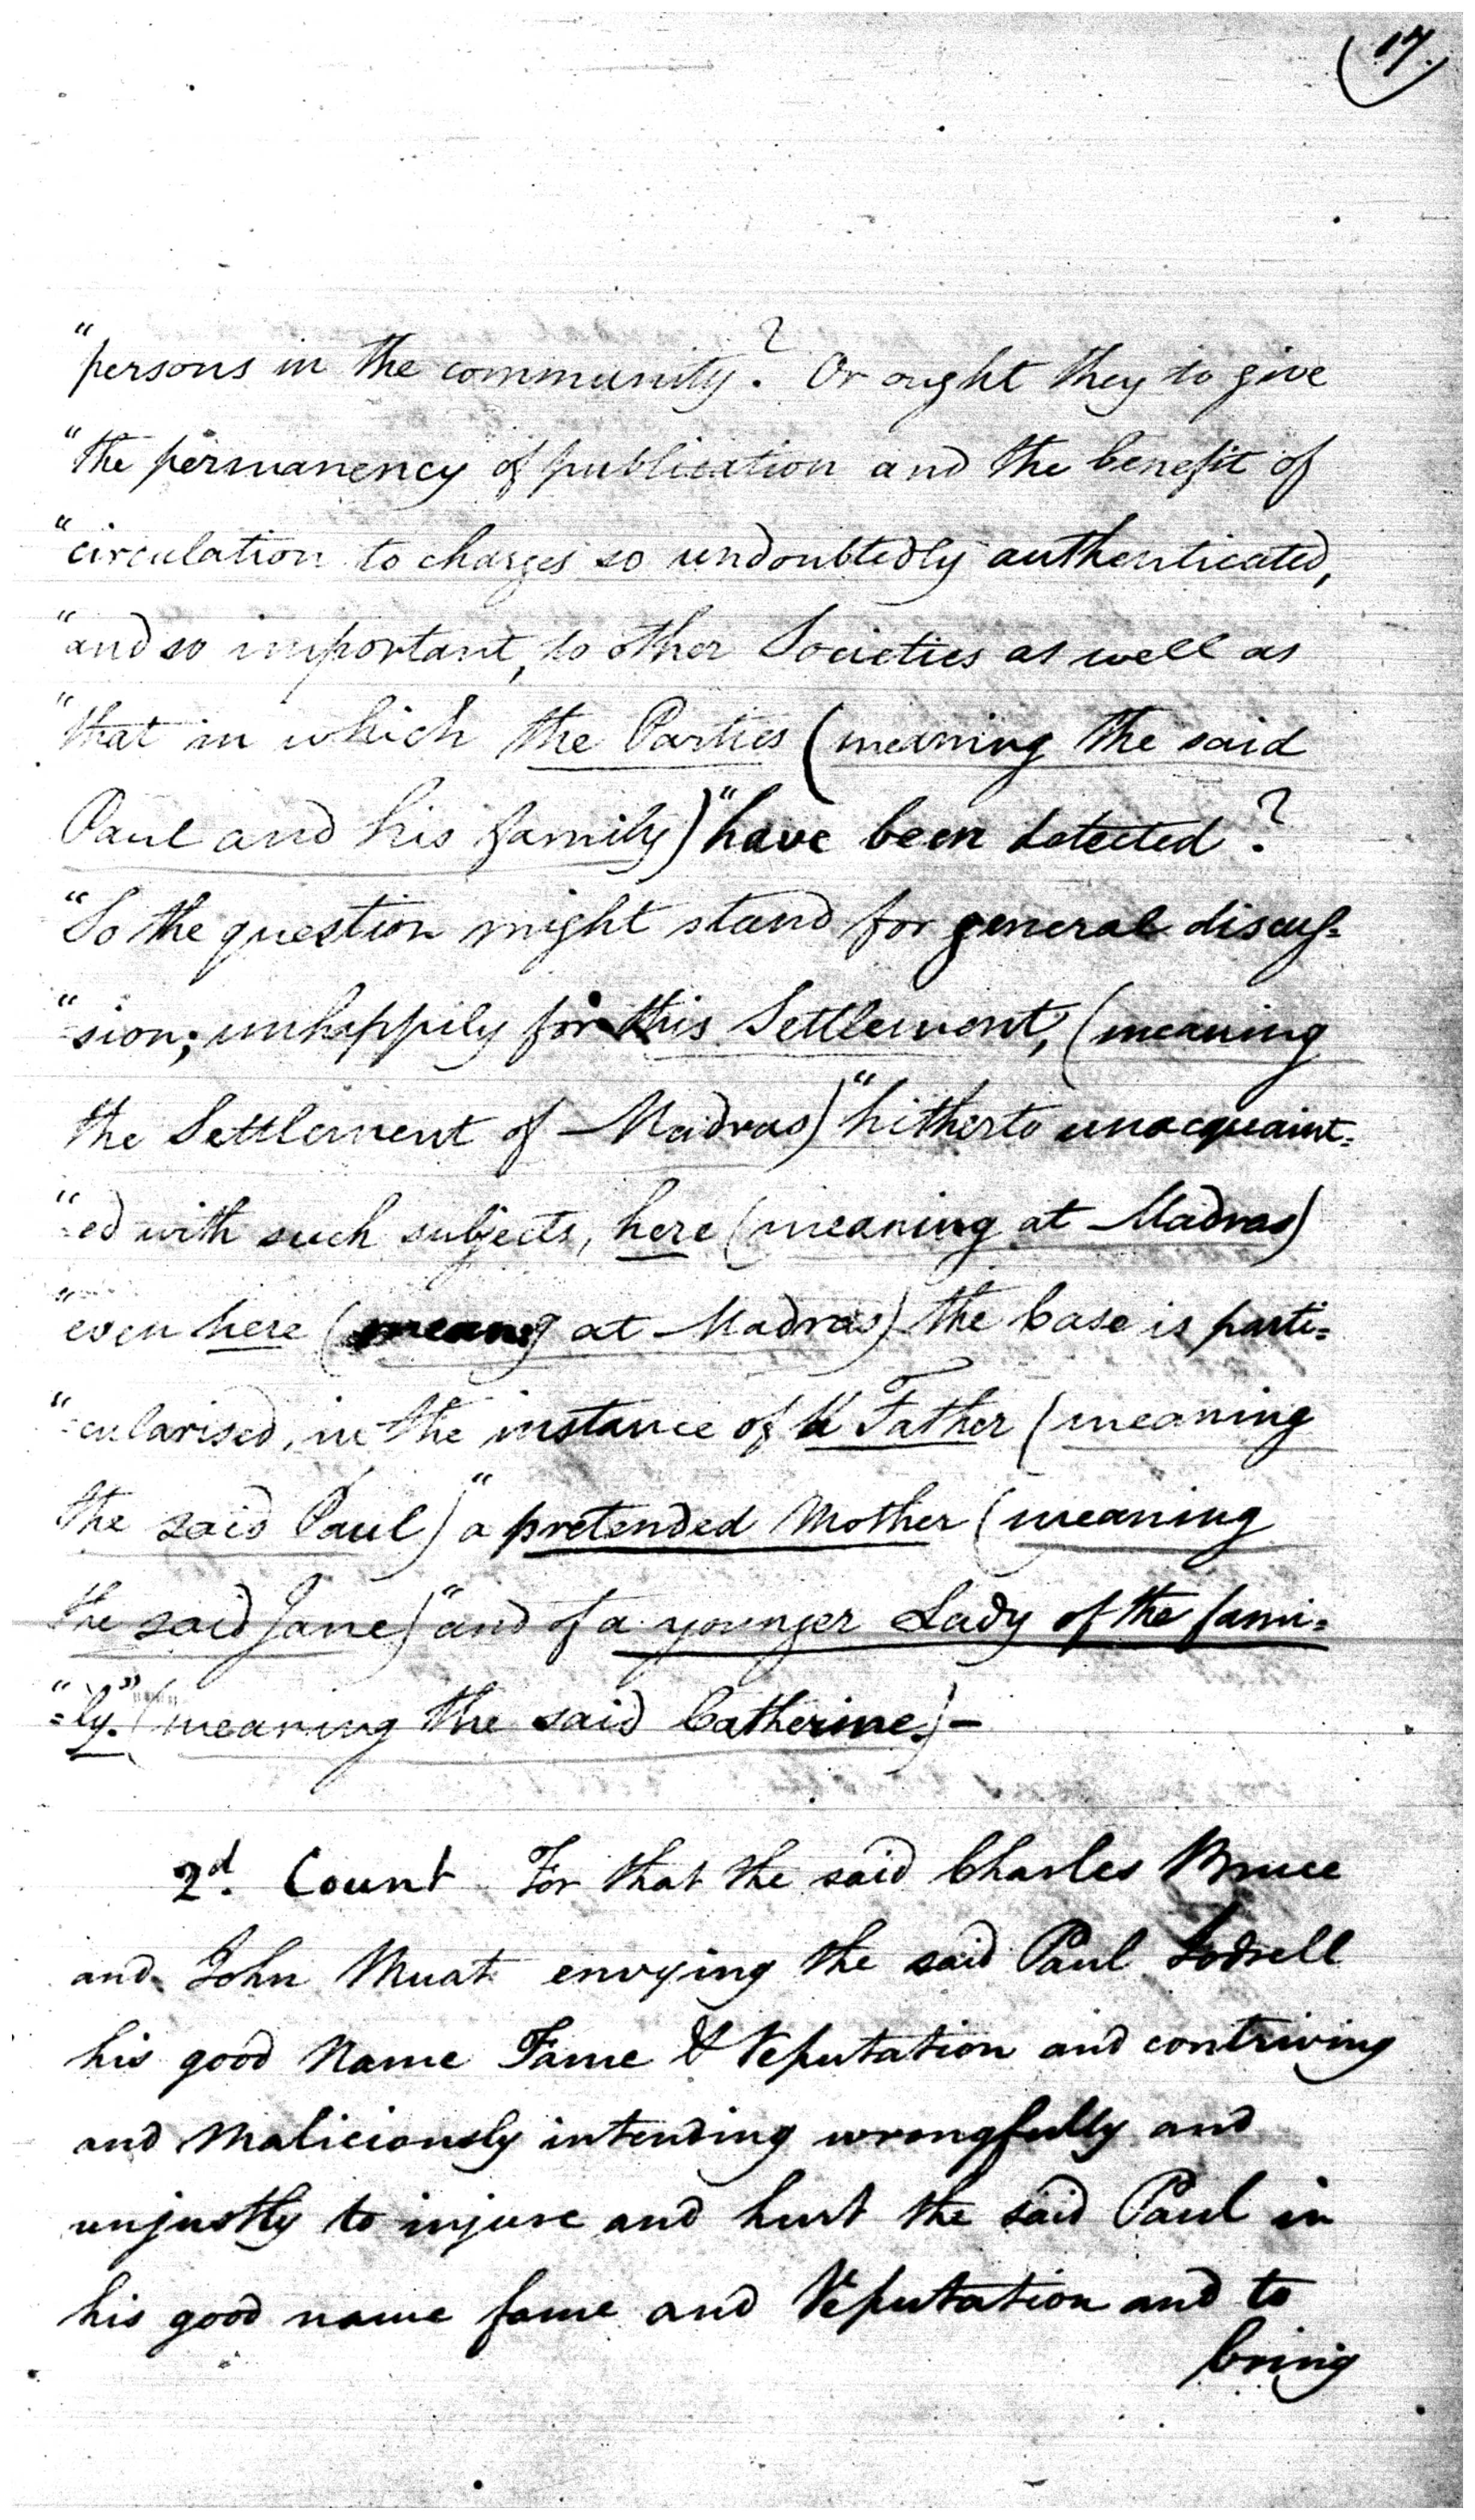 (17.)
"persons in the community? Or ought they to give
"the permanency of publication and the benefit of
"circulation to charges so undoubtedly authenticated,
"and so important, to other Societies as well as
"that in which the Parties (meaning the said
Paul and his family) "have been detected?
"So the question might stand for general discus=
"sion; unhappily for this Settlement, (meaning
the Settlement of Madras) "hitherto unacquaint=
"=ed with such subjects, here (meaning at Madras)
"even here (meang at Madras) the Case is parti=
"=cularised, in the instance of a Father (meaning
the said Paul) "a pretended Mother (meaning
the said Jane) "and of a younger Lady of the fami=
"=ly." (meaning the said Catherine.) -
2d. Count For that the said Charles Bruce
and John Muat envying the said Paul Jodrell
his good Name Fame & Reputation and contriving
and Maliciously intending wrongfully and
unjustly to injure and hurt the said Paul in
his good name fame and Reputation and to
bring